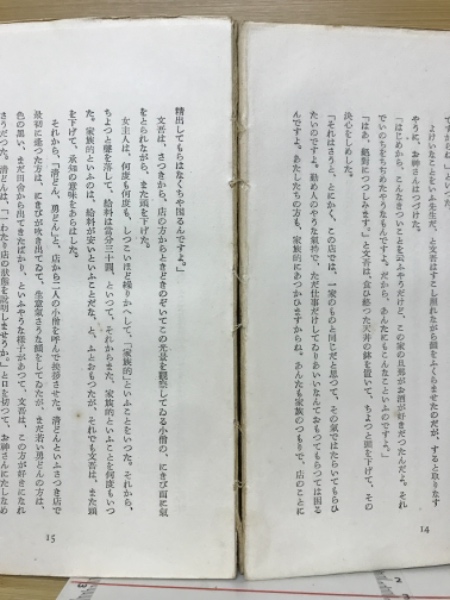 ですからね」といつた。
よけいなことをいふ先生だ、と文吾はすこし照れながら顔をふくらませたのだが、すると取りなす
やうに、お神さんはつづけた。
「はじめから、こんなきついことを云ふやうだけど、この家の旦那がお酒が好きだつたんだよ。それ
でいのちをちぢめたやうなもんですよ。だから、あんたにもこんなこといふのですよ。」
「はあ、絶對につつしみます。」と文吾は、食ひ終つた天丼の鉢を置いて、ちよつと頭を下げて、その
決心をしめした。
「それはさうと、とにかく、この店では、一家のものと同じだと思つて、その氣ではたらいてもらひ
たいのですよ。勤め人のやうな氣持で、ただ仕事だけしてゐりあいいなんておもつてもらつては困る
んですよ。あたしたちの方も、家族的にあつかひますからね。あんたも家族のつもりで、店のことに
14
精出してもらはなくちや困るんですよ。」
文吾は、さつきから、店の方からときどきのぞいてこの光景を觀察してゐる小僧の、にきび面に氣
をとられながら、また頭を下げた。
女主人は、何度も何度も、しつこいほど繰りかへして、「家族的」といふことをいつた。それから、
ちよつと聲を落して、給料は當分三十圓、といつて、それからまた、家族的といふことを何度もいつ
た。家族的といふのは、給料が安いといふことだな、と、ふとおもつたが、それでも文吾は、また頭
を下げて、承知の意味をあらはした。
それから、「清どん、勇どん」と、店から二人の小僧を呼んで挨拶させた。清どんといふさつき店で
最初に逢つた方は、にきびが吹き出てゐて、生意氣さうな顔をしてゐたが、まだ若い勇どんの方は、
色の黒い、まだ田舎から出てきたばかり、といふやうな様子があつて、文吾は、この方が好きになれ
さうだつた。清どんは、「一わたり店の狀態を説明しませうか。」と口を切つて、お神さんにたしなめ
15